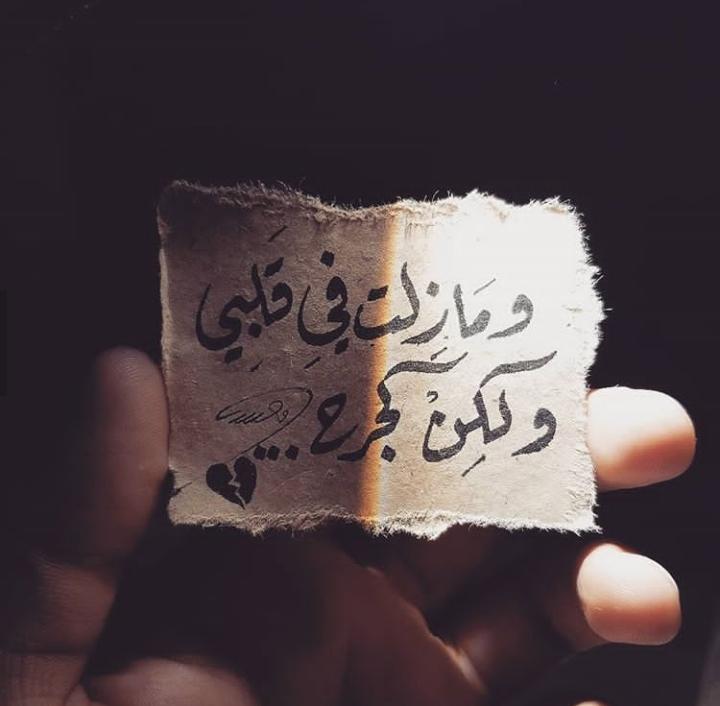 ومَازِلت فِي قَلبِي
ولكِنْ كجرح ...